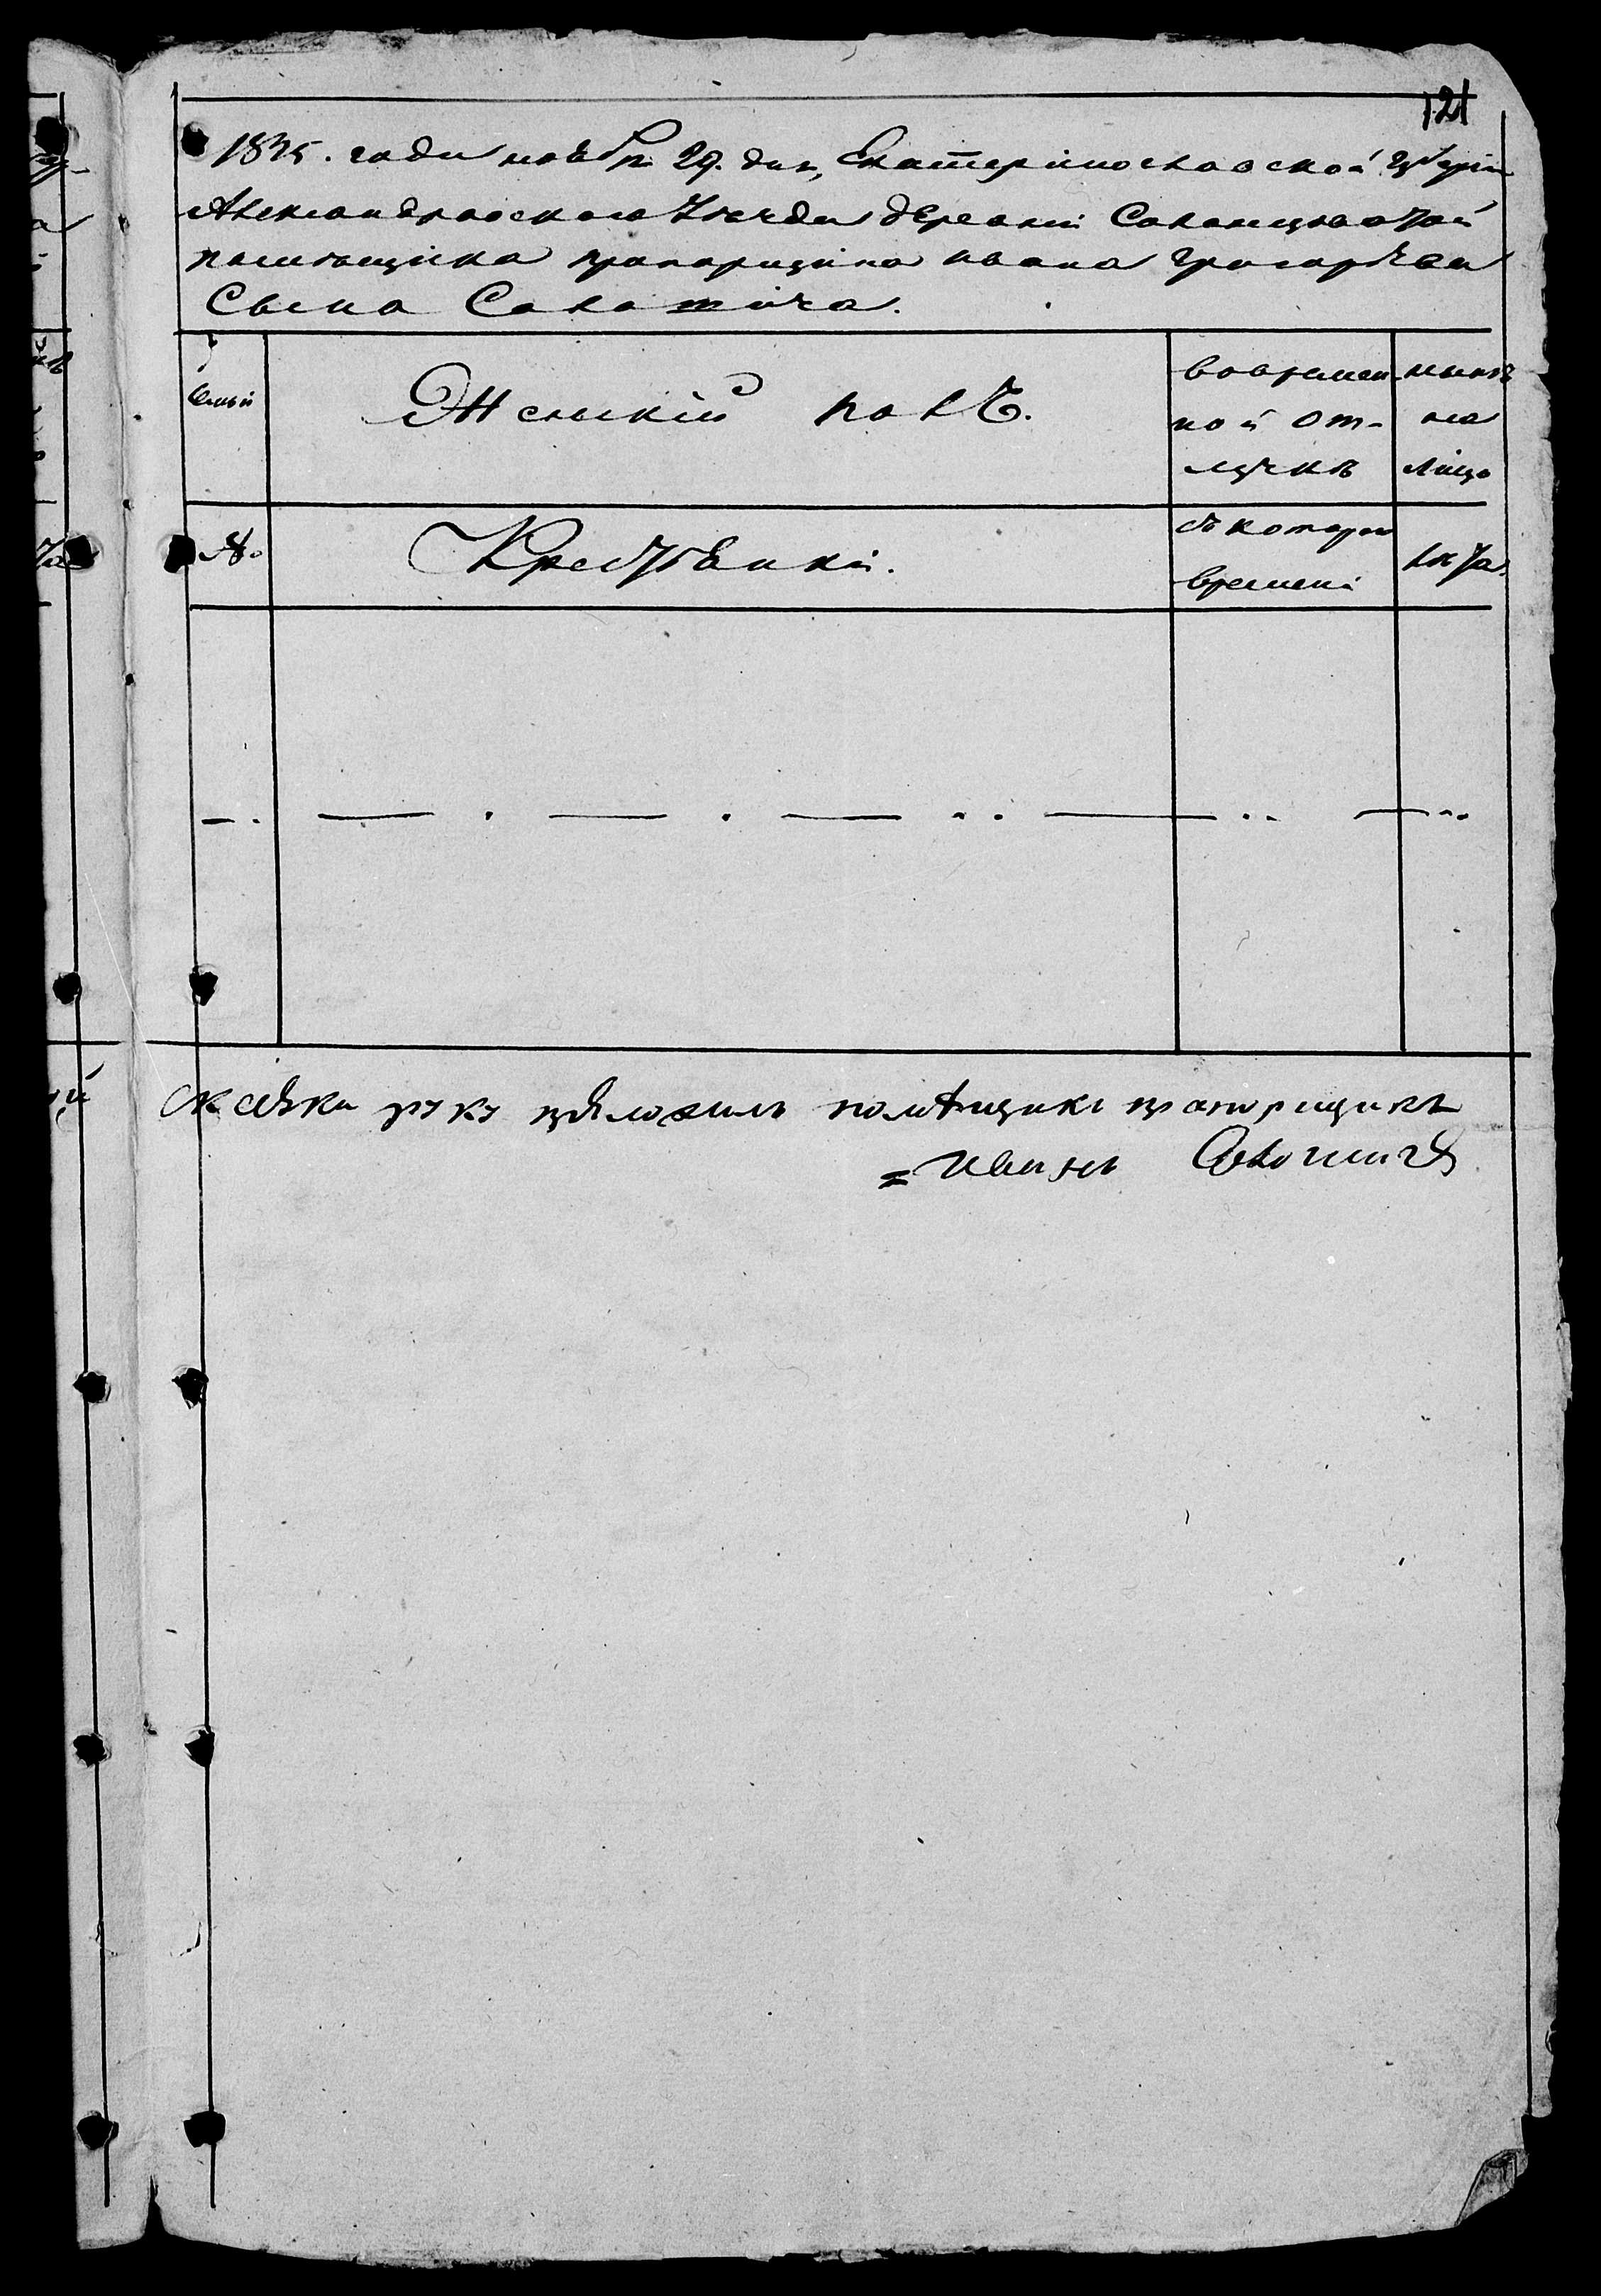 121
1835. года ноября 29. дня, Екатеринославской Губерніи
Александровского Уѣзда деревни Солонцоватой
помѣщика прапорщика ивана григорьева
Сына
семьи
Женский полъ.
вовремен
ной от-
лучкѣ
нынѣ
на
лицо
№
Крестьянки.
съ которого
времени
лѣта
Ксей скаски руку приложилъ помѣщикъ прапорщикъ
Иванъ